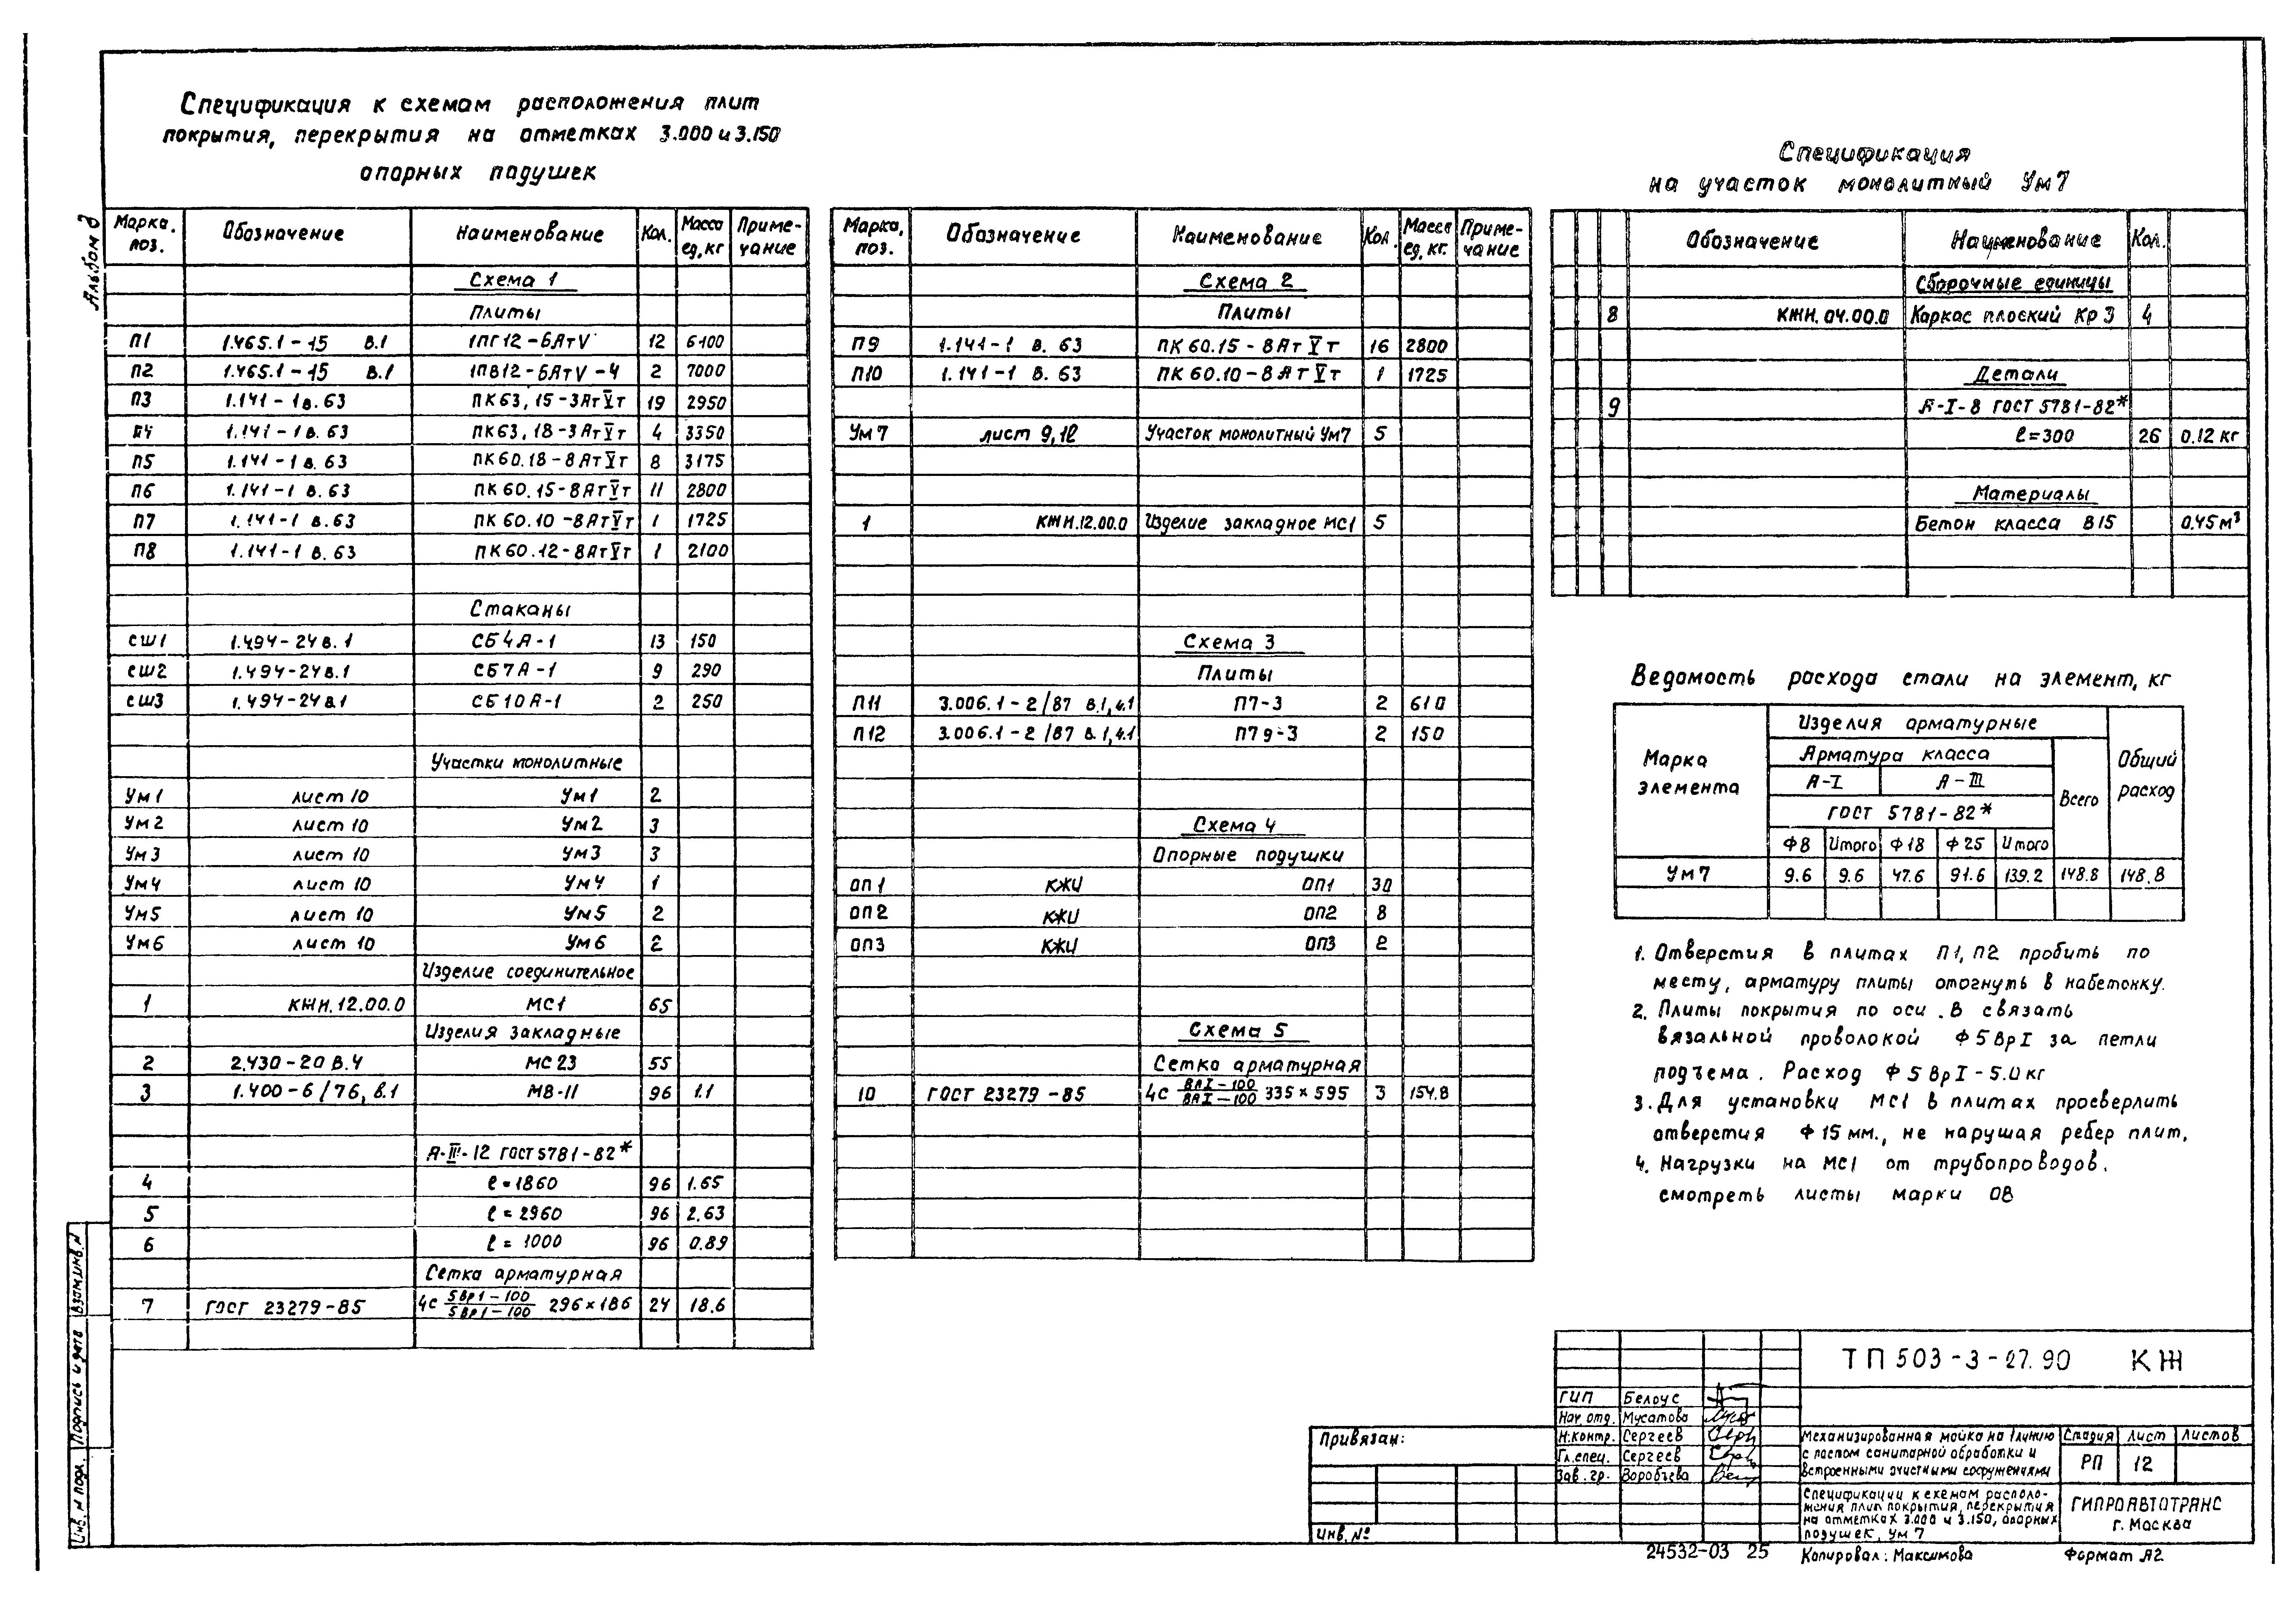 Спецификация к схемам расположения плит
покрытия, перекрытия на отметках 3.000 и 3.150
опорных подушек
Марка, поз. Обозначение Наименование Кол. Масса ед, кг Приме-чание
Схема 1
Плиты
П1 1.465.1-15 в.1 1ПГ12-6АтV 12 6100
П2 1.465.1-15 в.1 1ПВ12-6АтV-4 2 7000
П3 1.141-1 в. 63 ПК63,15-3АтVт 19 2950
П4 1.141-1 в. 63 ПК63,18-3АтVт 4 3350
П5 1.141-1 в. 63 ПК60.18-8АтVт 8 3175
П6 1.141-1 в. 63 ПК60.15-8АтVт 11 2800
П7 1.141-1 в. 63 ПК60.10-8АтVт 1 1725
П8 1.141-1 в. 63 ПК60.12-8АтVт 1 2100
Стаканы
СШ1 1.494-24 в. 1 СБ4А-1 13 150
СШ2 1.494-24 в. 1 СБ7А-1 9 290
СШ3 1.494-24 в.1 СБ10А-1 2 250
Участки монолитные
Ум1 лист 10 Ум1 2
Ум2 лист 10 Ум2 3
Ум3 лист 10 Ум3 3
Ум4 лист 10 Ум4 1
Ум5 лист 10 Ум5 2
Ум6 лист 10 Ум6 2
Изделие соединительное
1 КЖИ.12.00.0 МС1 65
Изделия закладные
2 2.430-20 в.4 МС23 55
3 1.400-6/76, в.1 МВ-11 96 1.1
А-III-12 ГОСТ 5781-82*
4 ℓ=1860 96 1.65
5 ℓ=2960 96 2.63
6 ℓ=1000 96 0.89
Сетка арматурная
7 ГОСТ 23279-85 4С 5Вр1-100/5Вр1-100 296×186 24 18.6
Марка, поз. Обозначение Наименование Кол. Масса ед, кг. Приме-чание
Схема 2
Плиты
П9 1.141-1 в. 63 ПК60.15-8АтVт 16 2800
П10 1.141-1 в. 63 ПК60.10-8АтVт 1 1725
Ум7 лист 9,12 Участок монолитный Ум7 5
1 КЖИ.12.00.0 Изделие закладное МС1 5
Схема 3
Плиты
П11 3.006.1-2/87 в.1,4.1 П7-3 2 610
П12 3.006.1-2/87 в.1,4.1 П7g-3 2 150
Схема 4
Опорные подушки
ОП1 КЖИ ОП1 30
ОП2 КЖИ ОП2 8
ОП3 КЖИ ОП3 2
Схема 5
Сетка арматурная
10 ГОСТ 23279-85 4С 8АI-100/8АI-100 335×595 3 154.8
Спецификация
на участок монолитный Ум7
Обозначение Наименование Кол.
Сборочные единицы
8 КЖИ.04.00.0 Каркас плоский Кр3 4
Детали
9 А-I-8 ГОСТ 5781-82*
ℓ=300 26 0.12 кг
Материалы
Бетон класса В15 0.45м³
Ведомость расхода стали на элемент, кг
Марка элемента Изделия арматурные Общий расход
Арматура класса Всего
А-I А-III
ГОСТ 5781-82*
Ф8 Итого Ф18 Ф25 Итого
Ум7 9.6 9.6 47.6 91.6 139.2 148.8 148.8
1. Отверстия в плитах П1, П2 пробить по
месту, арматуру плиты отогнуть в набетонку.
2. Плиты покрытия по оси .В связать
вязальной проволокой Ф5ВрI за петли
подъема. Расход Ф5ВрI-5.0кг
3. Для установки МС1 в плитах просверлить
отверстия Ф15мм., не нарушая ребер плит.
4. Нагрузки на МС1 от трубопроводов.
смотреть листы марки ОВ
ТП 503-3-27.90 КЖ
ГИП Белоус
Нач. отд. Мусатова
Н.контр. Сергеев
Гл.спец. Сергеев
Зав. гр. Воробьева
Механизированная мойка на 1 линию
с постом санитарной обработки и
встроенными очистными сооружениями
Стадия Лист Листов
РП 12
Спецификации к схемам располо-
жения плит покрытия, перекрытия
на отметках 3.000 и 3.150, опорных
подушек, Ум 7
ГИПРОАВТОТРАНС
г. Москва
Привязан:
Инв. №
24532-03 25
Копировал: Максимова
Формат А2
Альбом
Взам.инв.№
Подпись и дата
Инв. № подл.